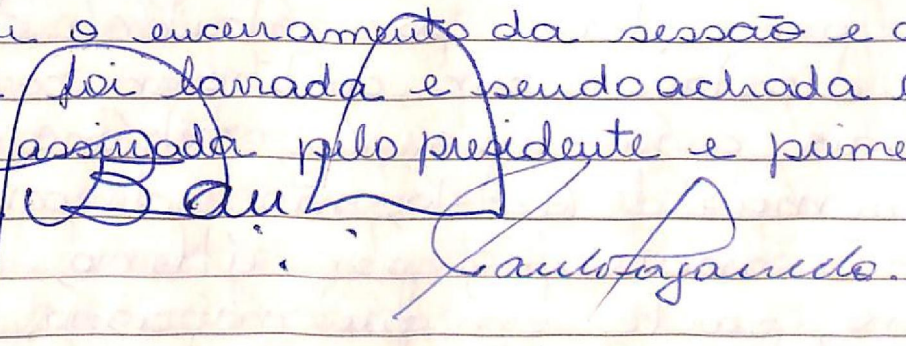 o encerramento da sessão e
foi lavrada e sendo achada
assinada pelo presidente e prime